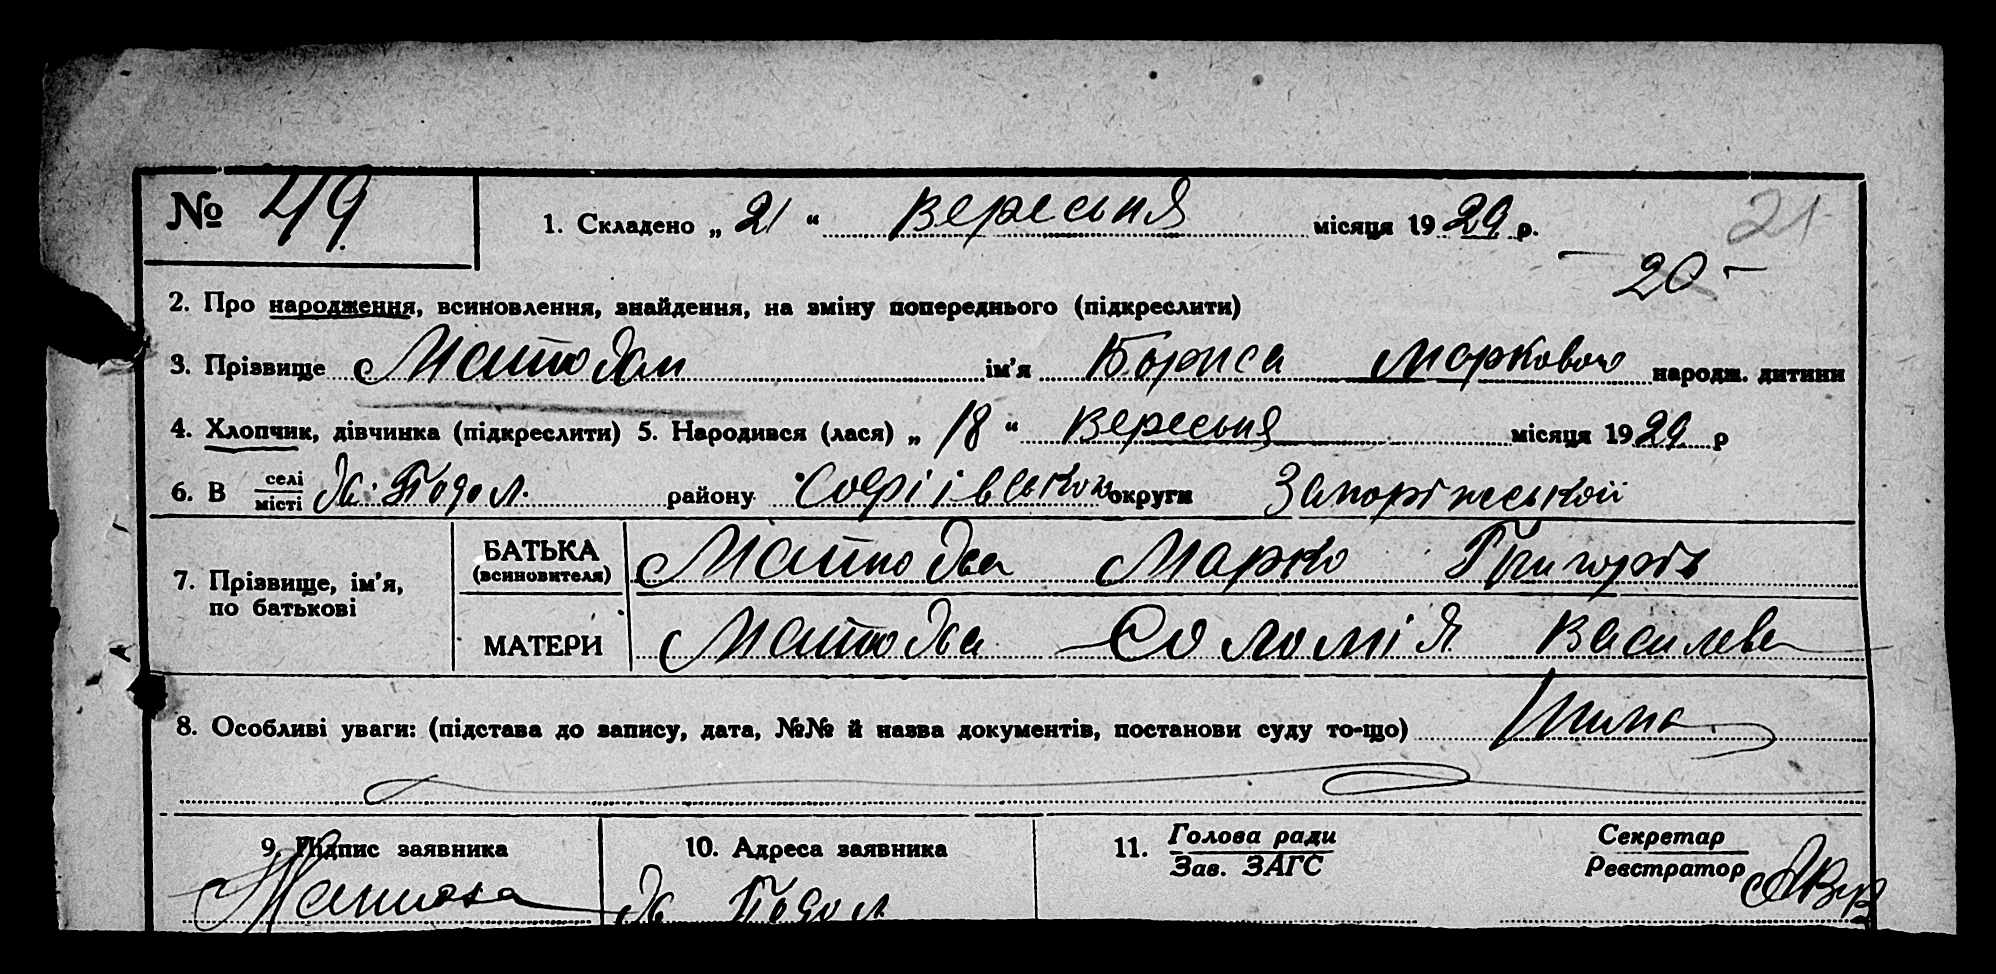 № 49
1. Складено „ 21 “ Вересьня місяця 1929 р.
21
- 20 -
2. Про народження, всиновлення, знайдення, на зміну попереднього (підкреслити)
3. Прізвище ім'я Бориса Маркович народж. дитини
4. Хлопчик, дівчинка (підкреслити) 5. Народився (лася) „ 18 “ Вересьня місяця 1929 р
6. В селі місті Подол. району Софіівськои округи Запоріжськой
7. Прізвище, ім'я, по батькові
БАТЬКА (всиновителя) Марко Григорів
МАТЕРИ Соломія Василева
8. Особливі уваги: (підстава до запису, дата, №№ й назва документів, постанови суду то-що)
9. Підпис заявника 10. Адреса заявника 11. Голова ради Зав. ЗАГС Секретар Реєстратор
Подол